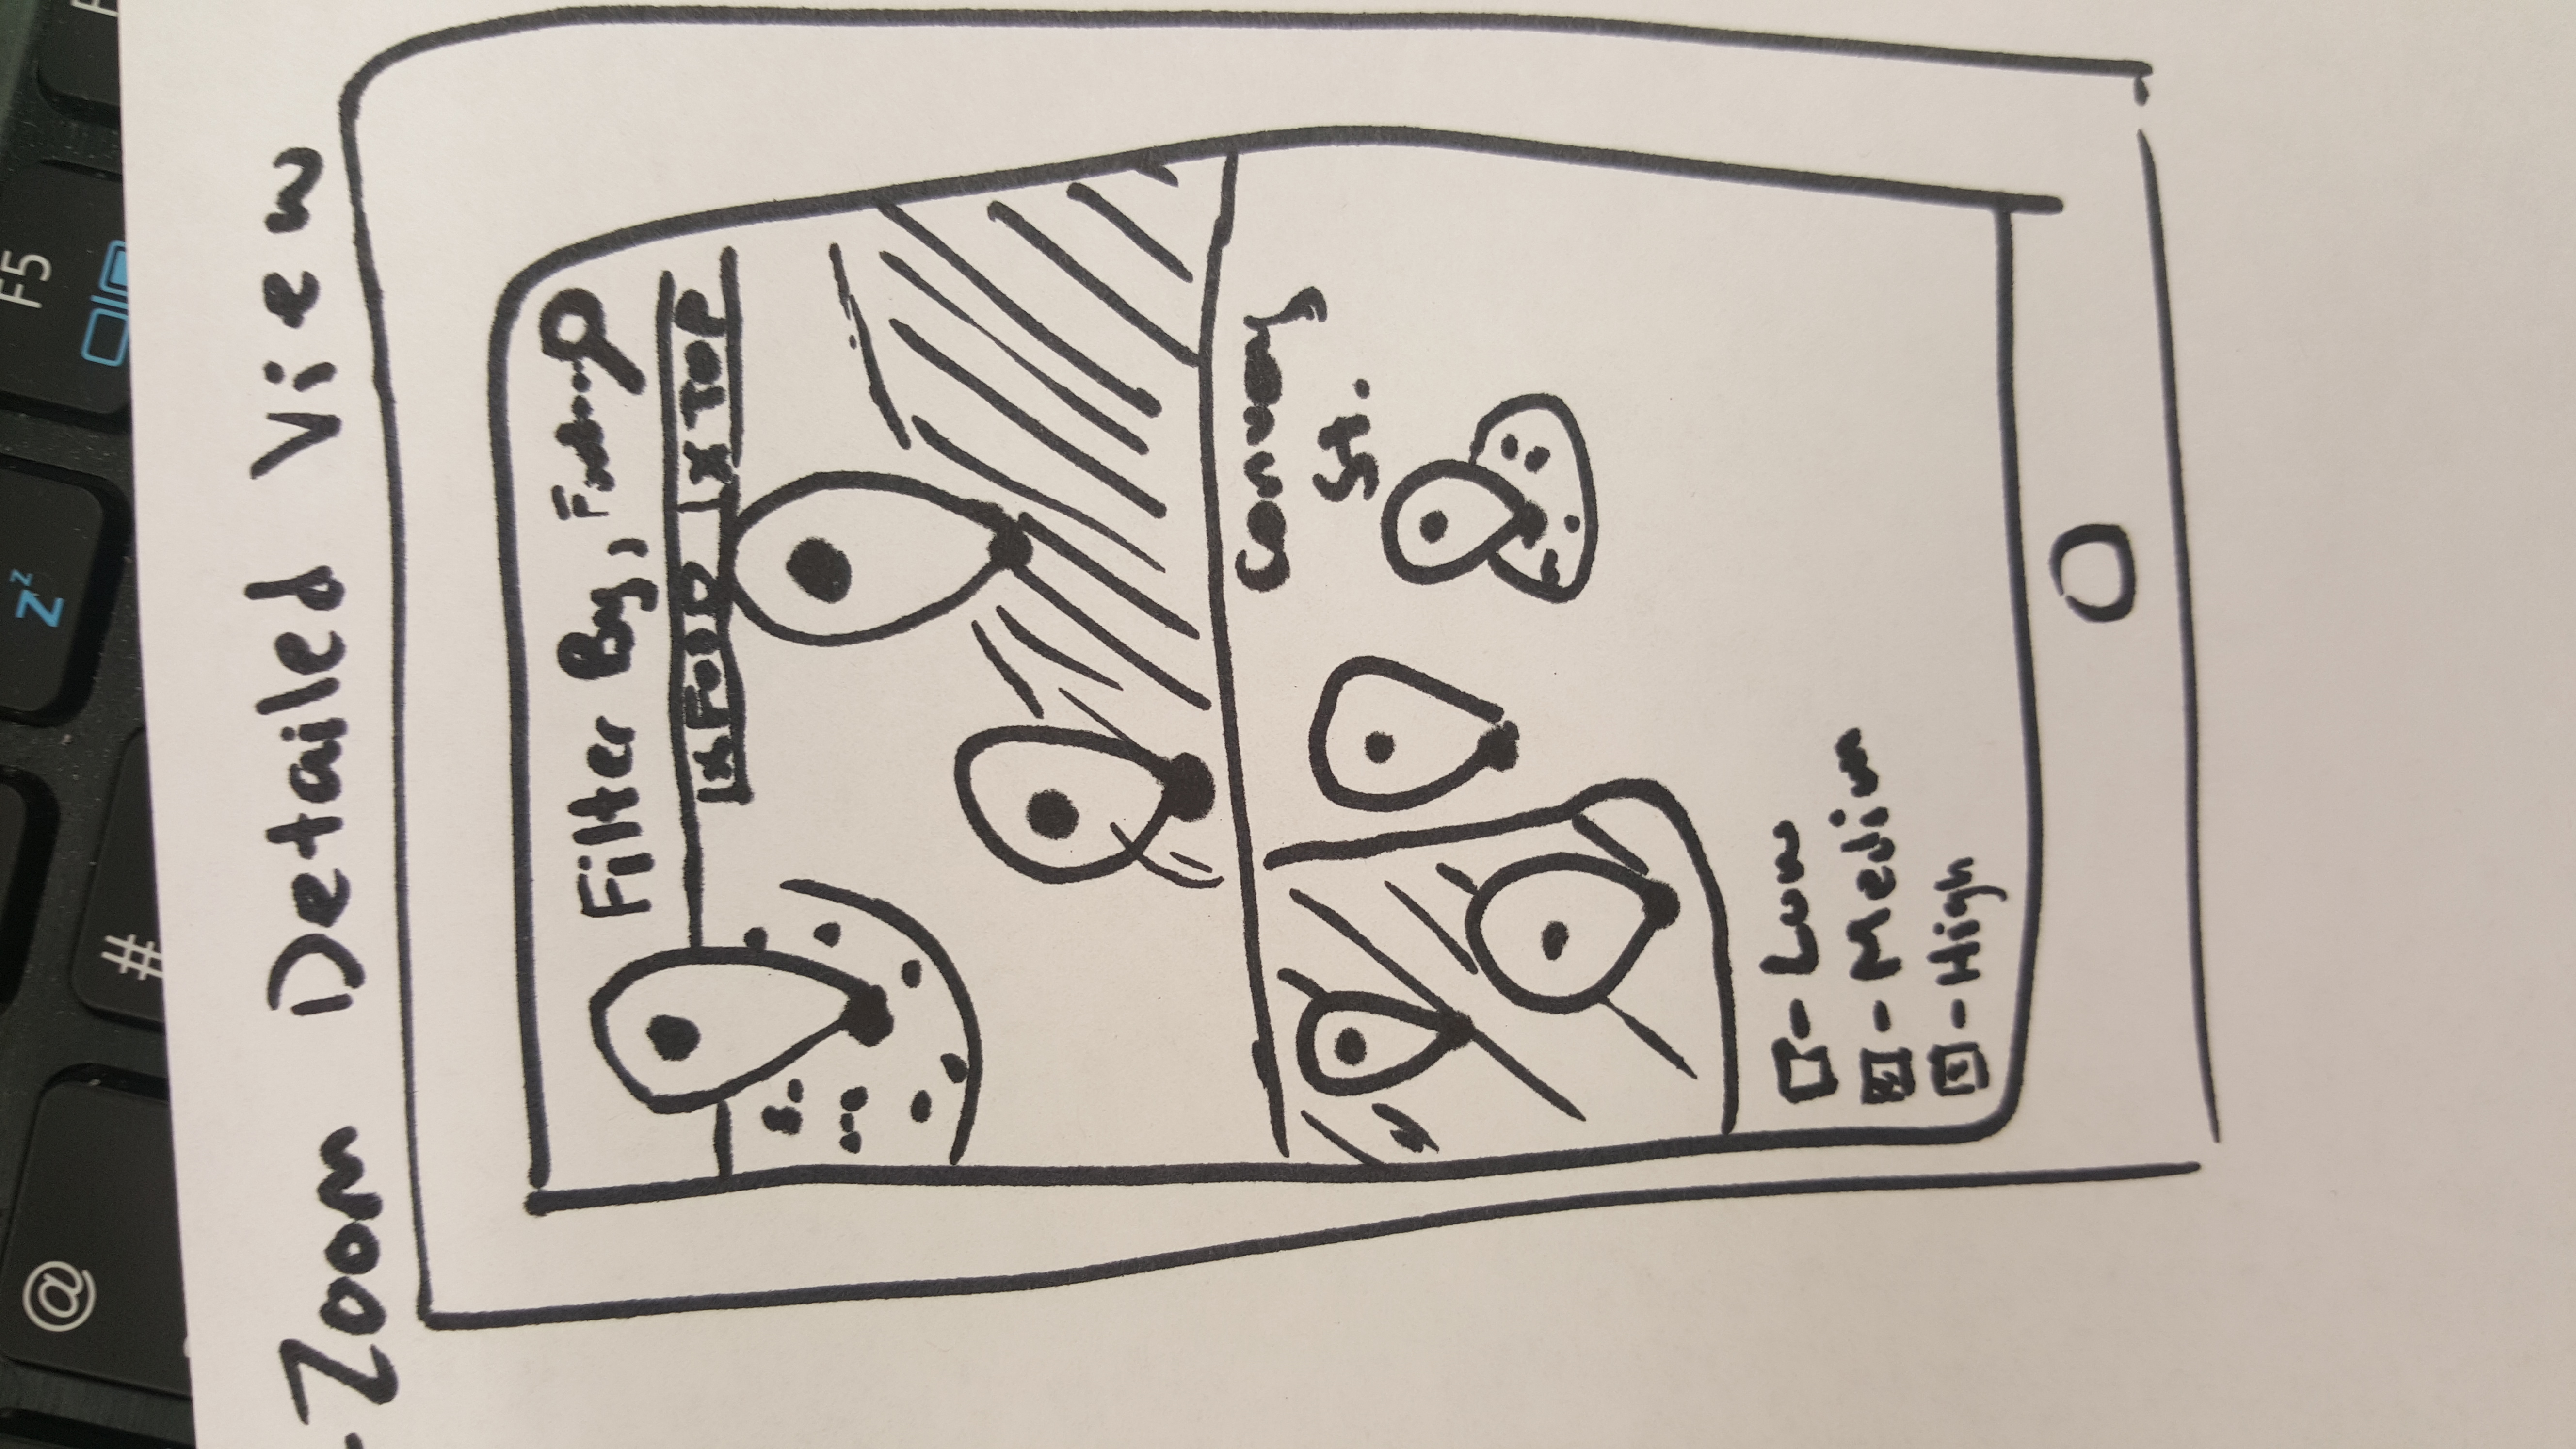 @
#
Zz
F5
- Zoom Detailed View
Filter By,
x FOOD x TOP
Convoy
St.
- Low
- Medium
- High